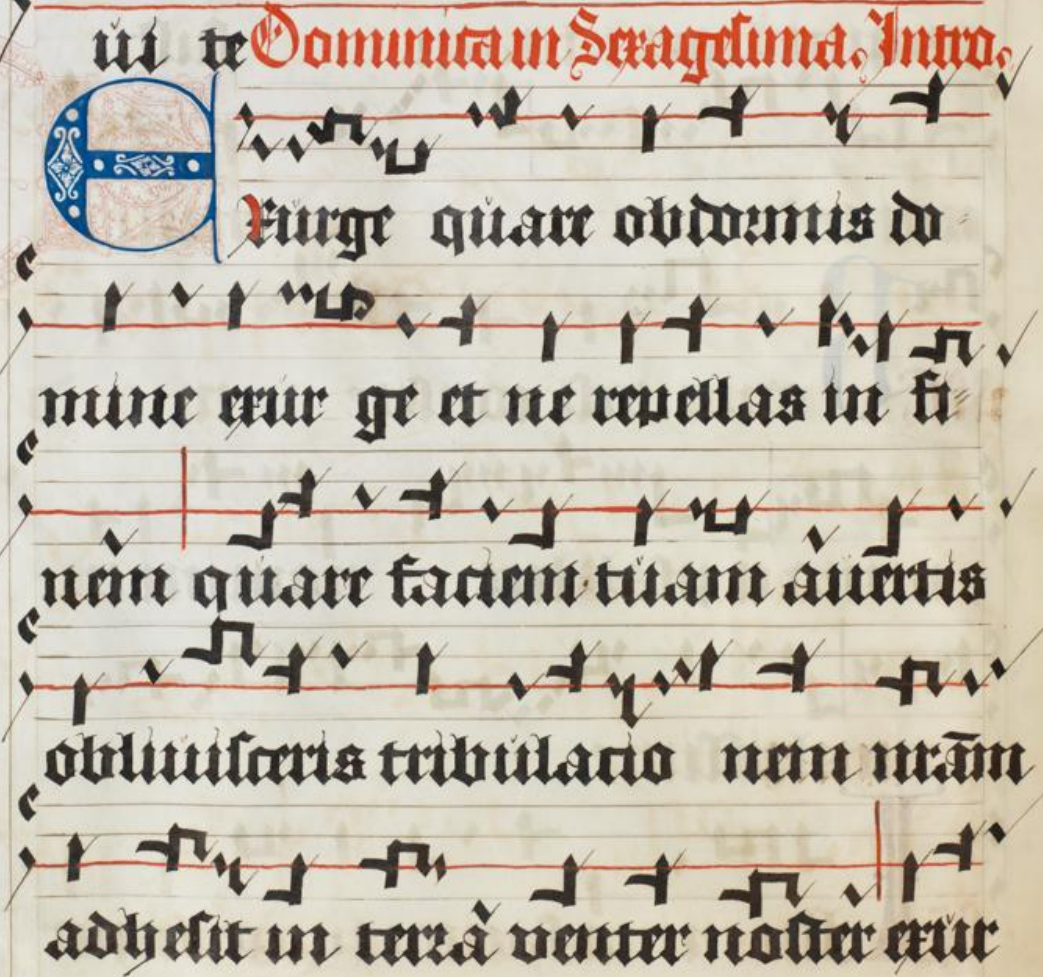 ui te Dominica in Sexagesima. Intro.
Exurge quare obdormis do=
mine exur ge et ne repellas in fi=
nem quare faciem tuam auertis
obliuisceris tribulacio nem nr̄am
adhesit in terrā venter noster exur